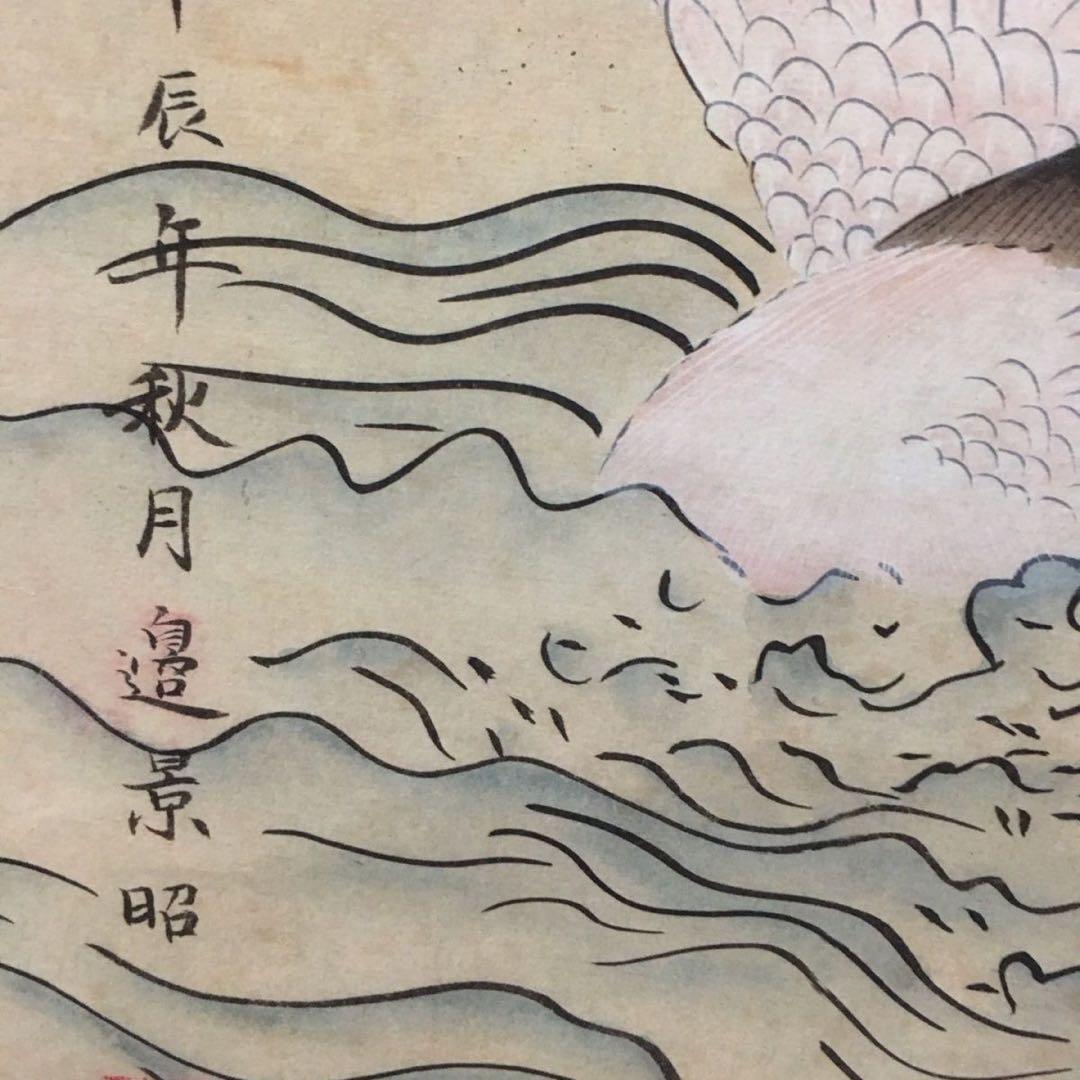 辰年秋月邉景昭